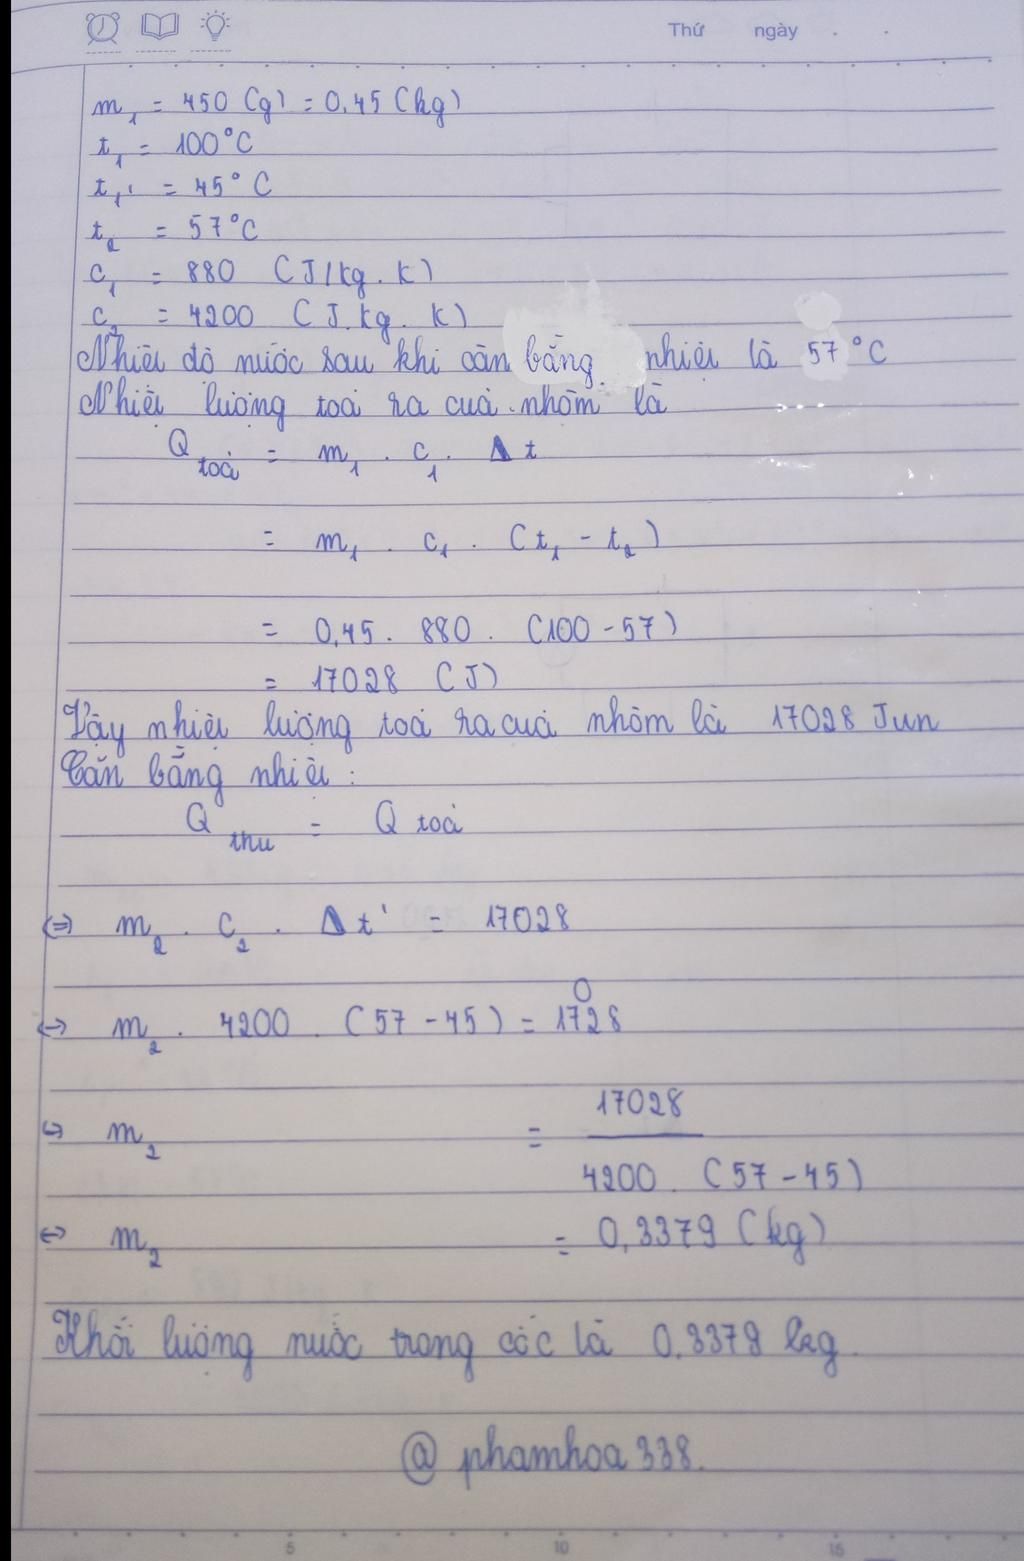 Thứ ngày
m₁ = 450 (g) = 0,45 (kg)
t₁ = 100°C
t₁' = 45°C
t₂ = 57°C
c₁ = 880 (J/kg.K)
c₂ = 4200 (J.kg.K)
Nhiệt độ nước sau khi cân bằng nhiệt là 57°C
Nhiệt lượng toả ra của nhôm là
Q toả = m₁ . c₁ . Δt
= m₁ . c₁ . (t₁ - t₂)
= 0,45 . 880 . (100 - 57)
= 17028 (J)
Vậy nhiệt lượng toả ra của nhôm là 17028 Jun
Cân bằng nhiệt :
Q thu = Q toả
⇔ m₂ . c₂ . Δt' = 17028
⇔ m₂ . 4200 . (57 - 45) = 17028
⇔ m₂ = 17028
4200 . (57 - 45)
⇔ m₂ = 0,3379 (kg)
Khối lượng nước trong cốc là 0,3379 kg.
@ phamhoa338.
5 10 15